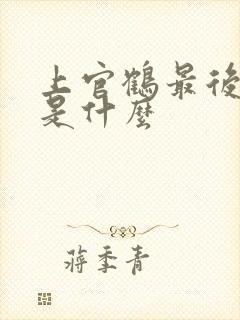 上官鶴最後
是什麼
蔣季青